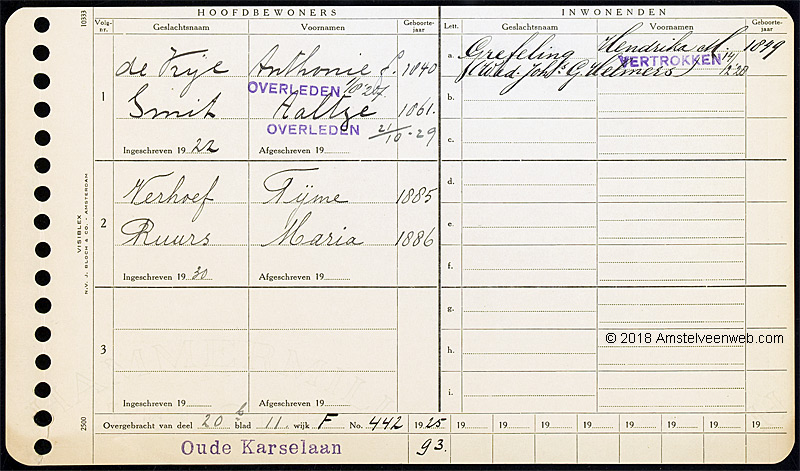 HOOFDBEWONERS
INWONENDEN
10333
Volg-nr.
Geslachtsnaam
Voornamen
Geboorte-jaar
Lett.
Geslachtsnaam
Voornamen
Geboorte-jaar
1
de Vrije Anthonie L. 1840
OVERLEDEN
Smit Aaltje 1861.
OVERLEDEN 21/10-29
Ingeschreven 19 22 Afgeschreven 19
a. Grefeling Hendrika M. 1899
VERTROKKEN
(Wed. Johs. G. Helmers)
b.
c.
2
Verhoef Tijme 1885
Ruurs Maria 1886
Ingeschreven 19 30 Afgeschreven 19
d.
e.
f.
3
Ingeschreven 19 Afgeschreven 19
g.
h.
i.
© 2018 Amstelveenweb.com
VISIBLEX
N.V. J. BLOCH & CO. - AMSTERDAM
2500
Overgebracht van deel 20 b blad 11. wijk F No. 442 1925. 19 19 19 19 19 19 19 19
Oude Karselaan 93.